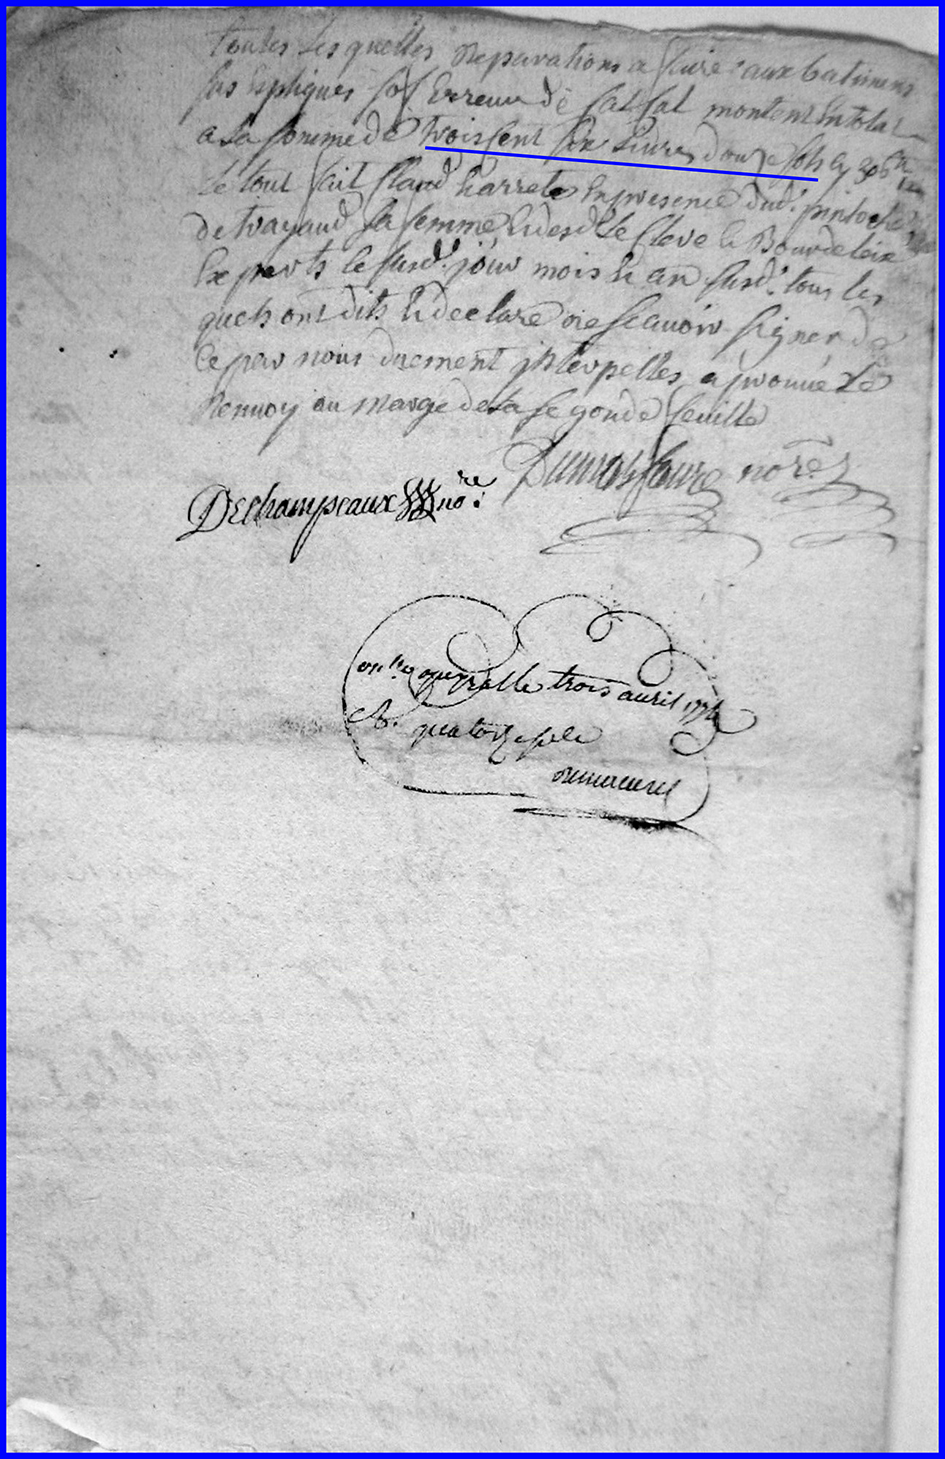 toutes Les quelles Reparations a faire aux batiments
sus Expliques sof Erreur de Calcul montent En total
a La somme de trois cent six Livres douze sols cy 306ll 12s
Le tout fait Clauö harrete En presence dud. pintoche
de trayaud sa femme Et desd. Le Cleve Et Bourdeloix
Experts le susd. jour mois Et an susd. tous les
quels ont dits Et declaré ne scavoir signer de
Ce par nous duement jnterpelles, aprouvé Le
Renvoy au marge de La segonde feuille
nore.
Dechampeaux nore.
trois avril 177
quatorze sols